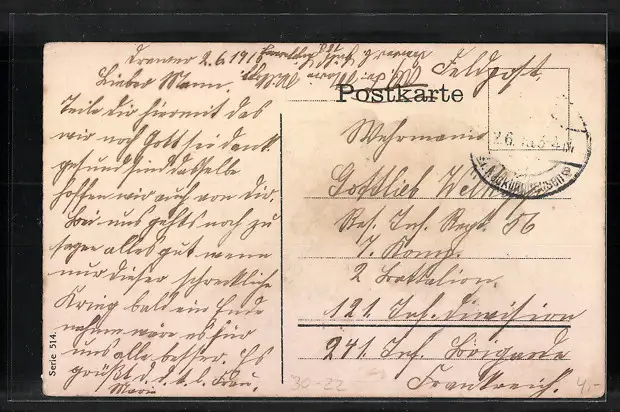 2.6.1916
Lieber Mann.
Teile dir hiermit das
wir noch Gott sei dank
gesund sind dasselbe
hoffen wir auch von Dir.
Bei uns gehts noch zu
sagen alles gut wenn
nur dieser schreckliche
Krieg bald ein Ende
nehme wäre es für
uns alle besser. Es
grüßt d. d. l. l. Frau.
Marie
Serie 514.
Feldpost.
Postkarte
Wehrmann
Gottlieb
Res. Inf. Regt. 56
7. Komp.
2 Battalion.
121 Inf. Division
241 Inf. Brigade
Frankreich.
30-22
4,-